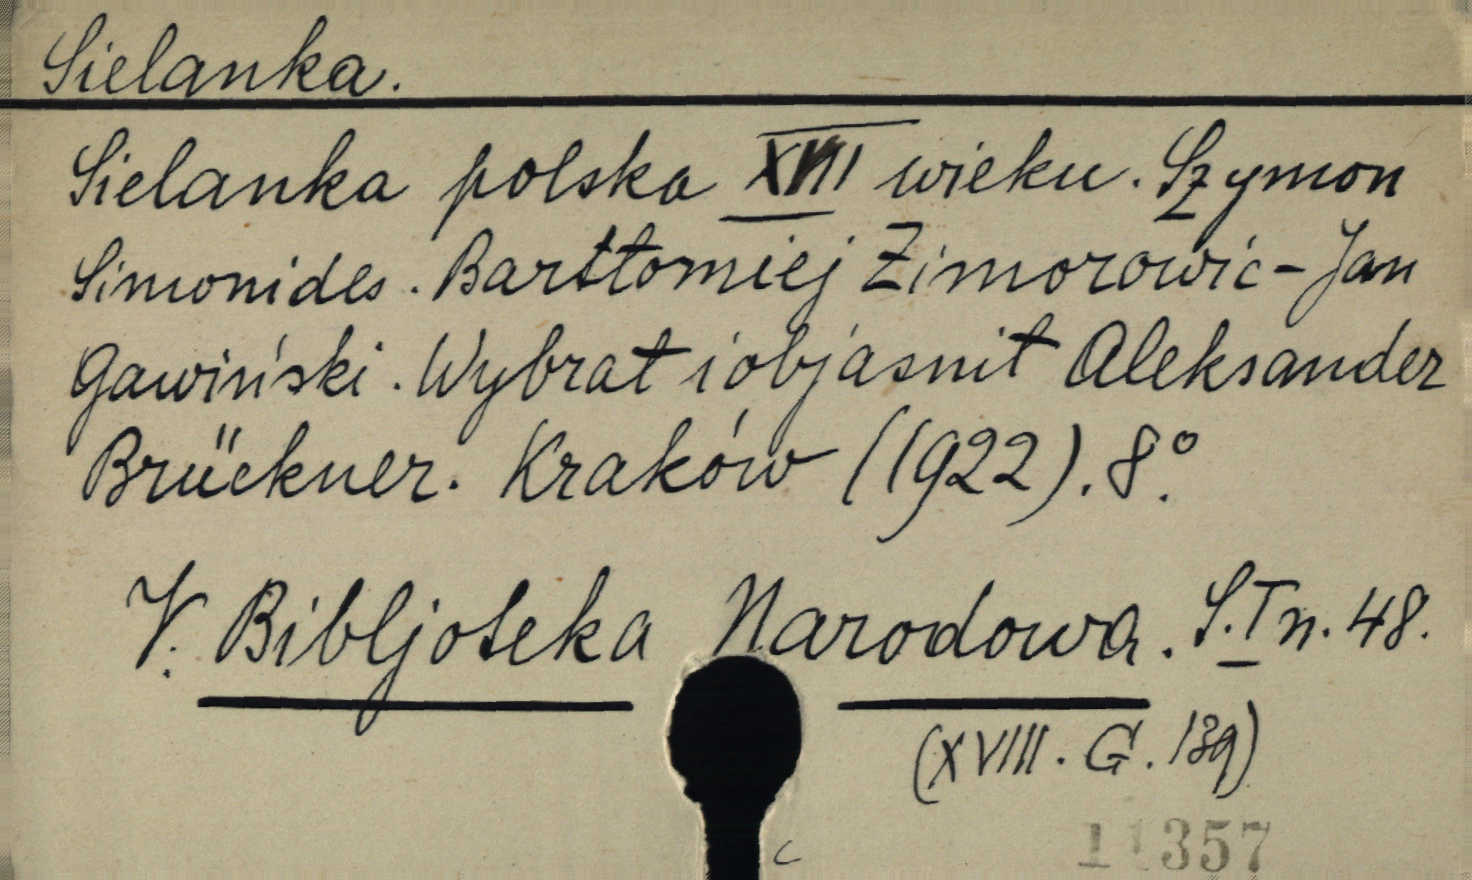 Sielanka.
Sielanka polska XVII wieku. Szymon
Simonides. Bartłomiej Zimorowic - Jan
Gawiński. Wybrał i objasnił Aleksander
Brückner. Kraków (1922). 8º.
V. Bibljoteka Narodowa. S. I n. 48.
(XVIII. G. 139)
11357